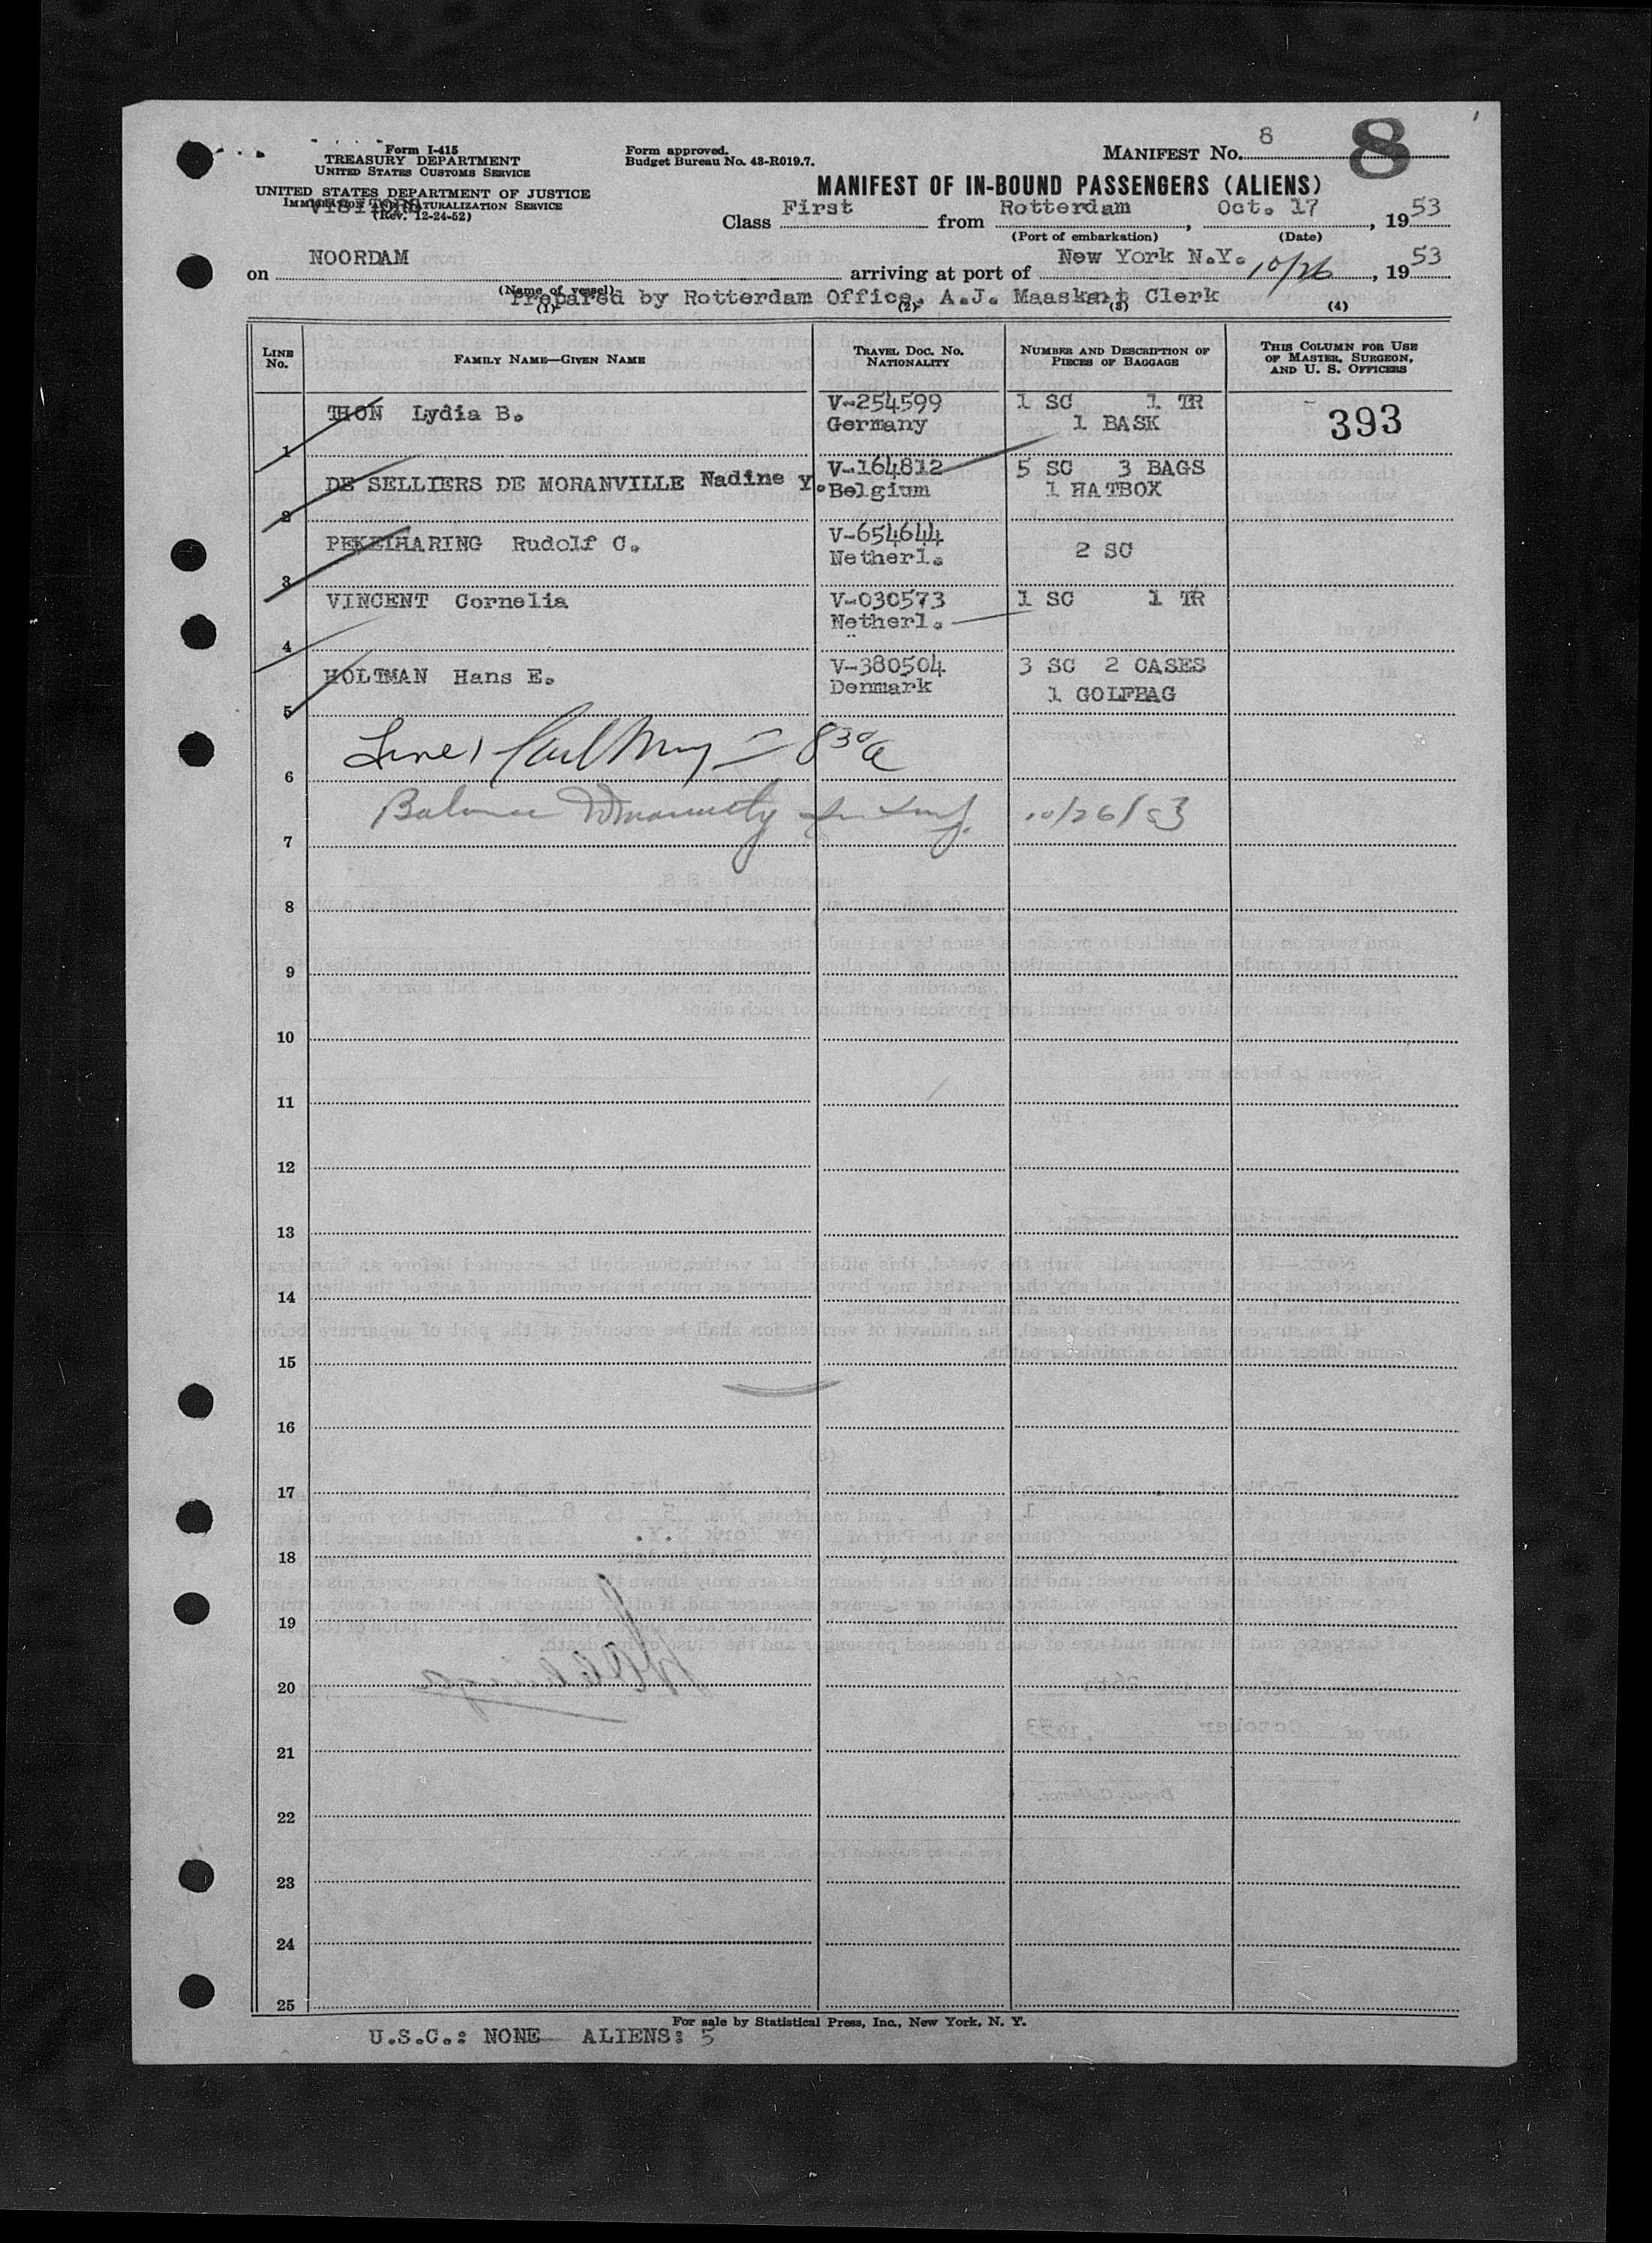 8
Form I-415
TREASURY DEPARTMENT
UNITED STATES CUSTOMS SERVICE
UNITED STATES DEPARTMENT OF JUSTICE
IMMIGRATION AND NATURALIZATION SERVICE
VISITORS
(Rev. 12-24-52)
Form approved.
Budget Bureau No. 43-R019.7.
MANIFEST NO. 8
MANIFEST OF IN-BOUND PASSENGERS (ALIENS)
Class First from Rotterdam, Oct. 17, 1953
(Port of embarkation) (Date)
on NOORDAM arriving at port of New York N.Y. 10/26, 1953
(Name of vessel)
Prepared by Rotterdam Office, A.J. Maaskant Clerk
(1) (2) (3) (4)
LINE NO. FAMILY NAME—GIVEN NAME TRAVEL DOC. NO. NATIONALITY NUMBER AND DESCRIPTION OF PIECES OF BAGGAGE THIS COLUMN FOR USE OF MASTER, SURGEON, AND U. S. OFFICERS
1 THON Lydia B. V-254599 Germany 1 SC 1 TR 1 BASK 393
2 DE SELLIERS DE MORANVILLE Nadine Y. V-164812 Belgium 5 SC 3 BAGS 1 HATBOX
3 PEKELHARING Rudolf C. V-654644 Netherl. 2 SC
4 VINCENT Cornelia V-030573 Netherl. 1 SC 1 TR
5 HOLTMAN Hans E. V-380504 Denmark 3 SC 2 CASES 1 GOLFBAG
6 Line 1 830a
7 Balance 10/26/53
8
9
10
11
12
13
14
15
16
17
18
19
20
21
22
23
24
25
For sale by Statistical Press, Inc., New York, N. Y.
U.S.C.: NONE ALIENS: 5